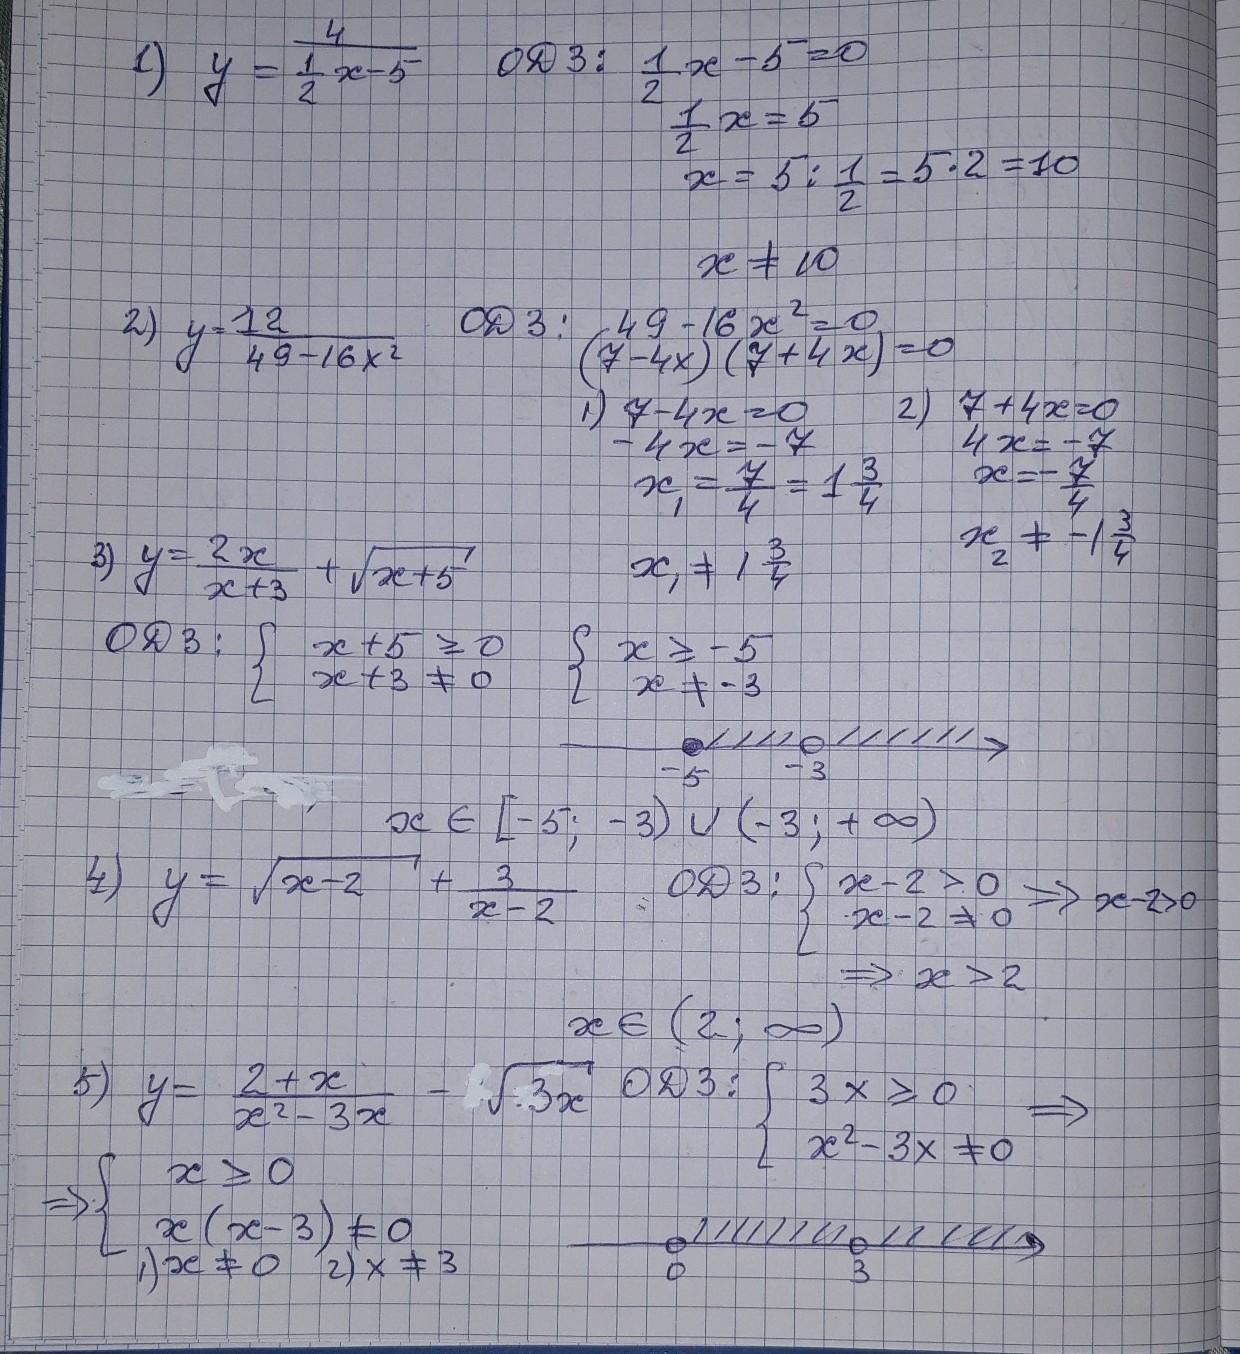 1) y = 4/(1/2 x - 5) ОДЗ: 1/2 x - 5 = 0
1/2 x = 5
x = 5 : 1/2 = 5 · 2 = 10
x ≠ 10
2) y = 12/(49 - 16x²) ОДЗ: 49 - 16x² = 0
(7 - 4x) (7 + 4x) = 0
1) 7 - 4x = 0 2) 7 + 4x = 0
- 4x = - 7 4x = - 7
x₁ = 7/4 = 1 3/4 x = - 7/4
x₁ ≠ 1 3/4 x₂ ≠ - 1 3/4
3) y = 2x/(x + 3) + √(x + 5)
ОДЗ: { x + 5 ≥ 0 { x ≥ - 5
x + 3 ≠ 0 x ≠ - 3
-5 -3
x ∈ [-5; -3) ∪ (-3; + ∞)
4) y = √(x - 2) + 3/(x - 2) ОДЗ: { x - 2 > 0 ⇒ x - 2 > 0
x - 2 ≠ 0
⇒ x > 2
x ∈ (2; ∞)
5) y = (2 + x)/(x² - 3x) - √(3x) ОДЗ: { 3x ≥ 0 ⇒
x² - 3x ≠ 0
⇒ { x ≥ 0
x (x - 3) ≠ 0
1) x ≠ 0 2) x ≠ 3
0 3